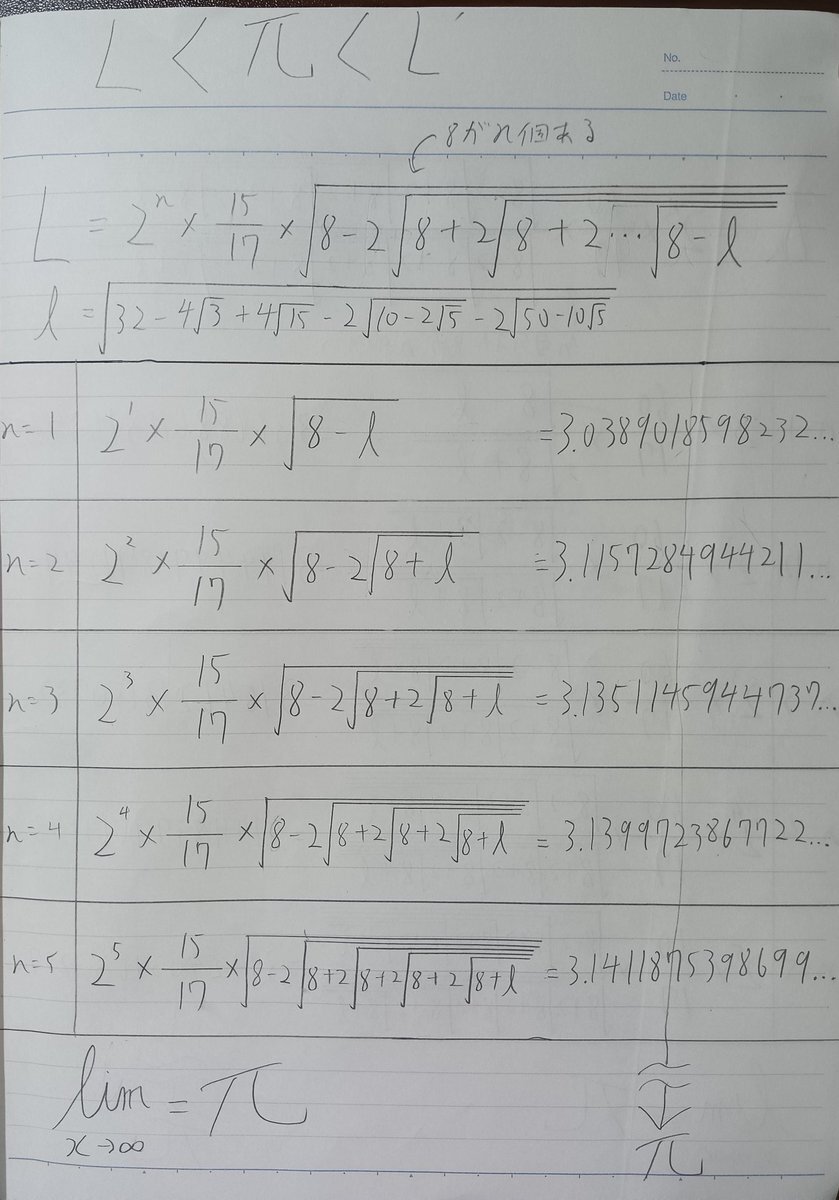 L < π < L'
No.
Date
8がn個ある
L = 2^n × 15/17 × √(8-2√(8+2√(8+2…√(8-l
l = √(32-4√3+4√15-2√(10-2√5)-2√(50-10√5))
n=1 2^1 × 15/17 × √(8-l) =3.0389018598232...
n=2 2^2 × 15/17 × √(8-2√(8+l)) =3.1157284944211...
n=3 2^3 × 15/17 × √(8-2√(8+2√(8+l))) =3.1351145944737...
n=4 2^4 × 15/17 × √(8-2√(8+2√(8+2√(8+l)))) =3.1399723867722...
n=5 2^5 × 15/17 × √(8-2√(8+2√(8+2√(8+2√(8+l))))) =3.1411875398699...
lim = π
x→∞
π